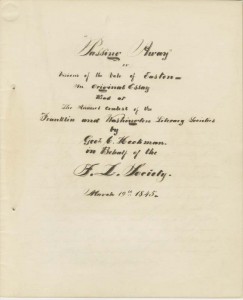 "Passing Away"
or
of the Vale of Easton
An Original Essay
Read at
The Annual Contest of the
Franklin and Washington Literary Societies
by
Geo. C. Heckman.
on Behalf of the
F. L. Society.
March 1845.